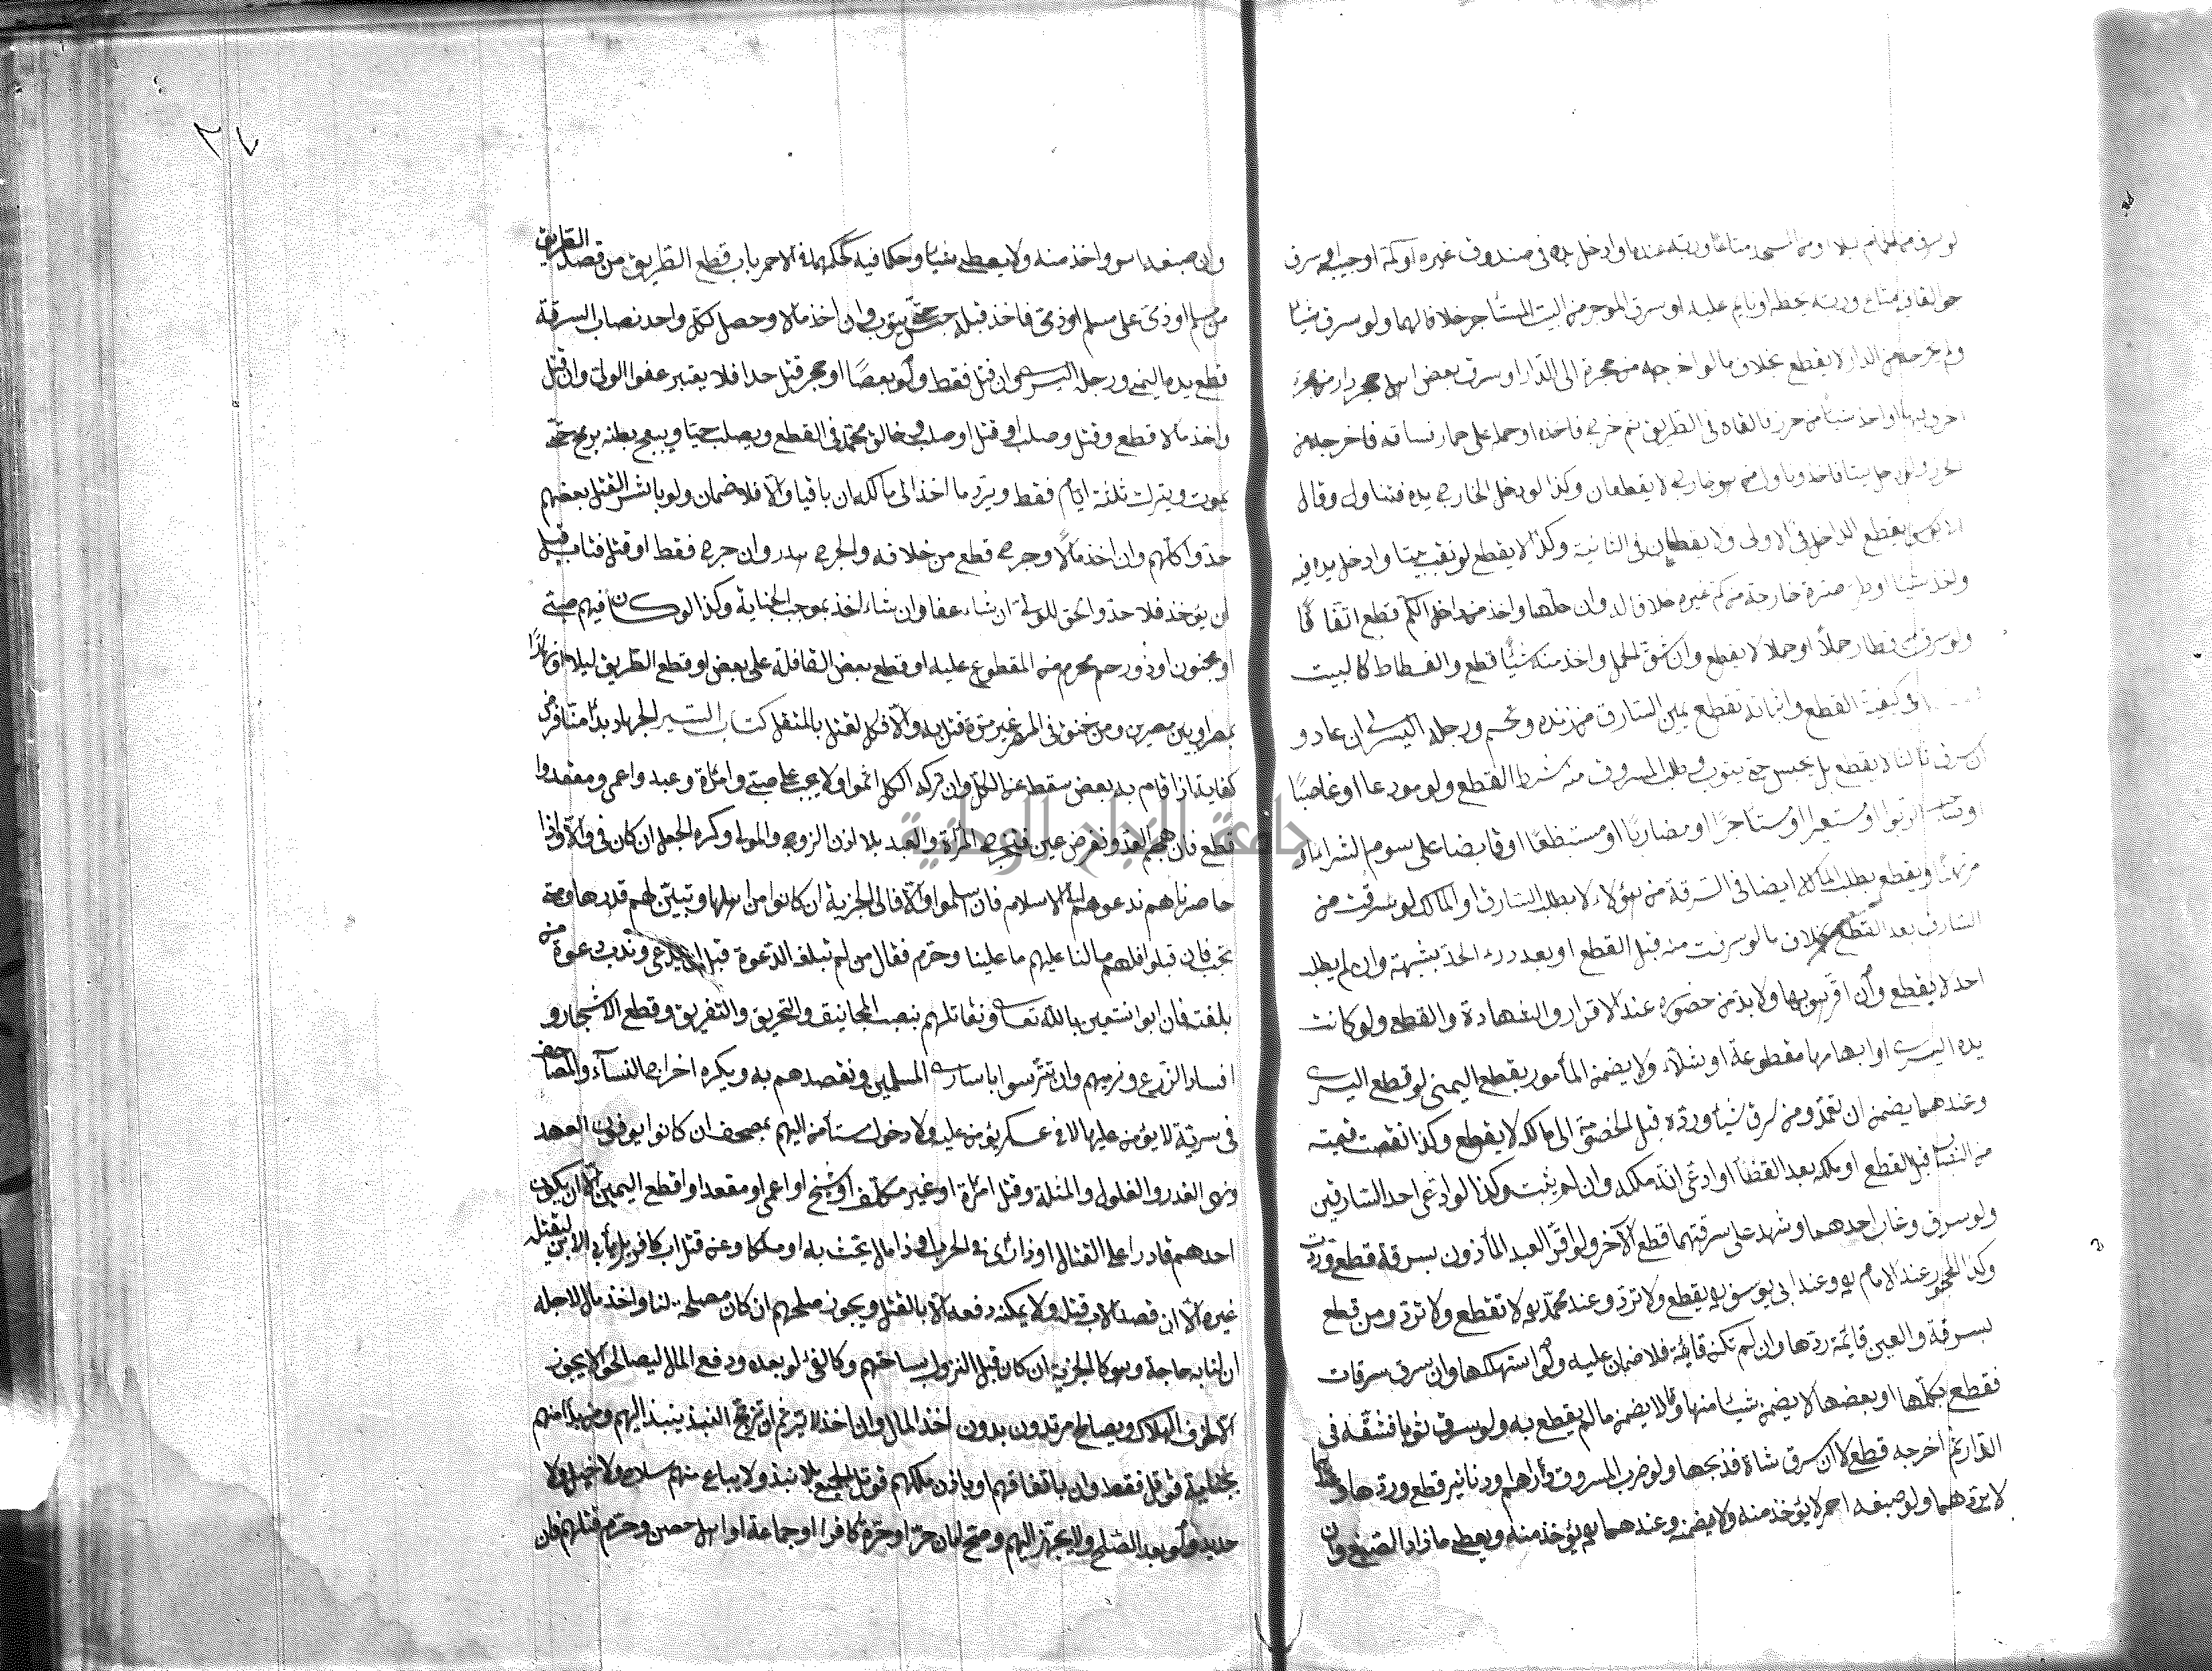 لو سرق من الحمام ليلا او من المسجد متاعا وربه عنده او ادخل يده فى صندوق غيره او كمه او جيبه او سرق
جوالقا فيه متاع وربه يحفظه او نايم عليه او سرق الموجر من البيت المستأجر خلافا لهما ولو سرق شيئا
ولم يخرجه من الدار لا يقطع بخلاف ما لو اخرجه من حجرة الى الدار او سرق بعض اهل حجر دار من حجرة
اخرى فيها او اخذ شيئا من حرز فالقاه فى الطريق ثم خرج فاخذه او حمله على حمار فساقه فاخرجه من
الحرز ولو دخل بيتا فاخذ وناول من هو خارج لا يقطعان وكذا لو ادخل الخارج يده فتناول وقال
ابو يوسف يقطع الداخل فى الاولى ولا يقطعان فى الثانية وكذا لا يقطع لو نقب بيتا وادخل يده فيه
واخذ شيئا او طر صرة خارجة من كم غيره خلافا له وان حلها واخذ من داخل الكم قطع اتفاقا
ولو سرق من قطار جملا او حملا لا يقطع وان شق الحمل واخذ منه شيئا قطع والفسطاط كالبيت
فى كيفية القطع واثباته تقطع يمين السارق من زنده وتحسم ورجله اليسرى ان عاد و
ان سرق ثالثا لا يقطع بل يحبس حتى يتوب وطلب المسروق منه شرط القطع ولو مودعا او غاصبا
او صاحب الربوا او مستعيرا او مستأجرا او مضاربا او مستبضعا او قابضا على سوم الشراء او
مرتهنا ويقطع بطلب المالك ايضا فى السرقة من هؤلاء لا بطلب السارق او المالك لو سرقت من
السارق بعد القطع بخلاف ما لو سرقت منه قبل القطع او بعد درء الحد بشبهة وان لم يطلب
احد لا يقطع وان اقر هو بها ولا بد من حضوره عند الاقرار والشهادة والقطع ولو كانت
يده اليسرى او ابهامها مقطوعة او شلاء ولا يضمن المأمور بقطع اليمنى لو قطع اليسرى
وعندهما يضمن ان تعمد ومن سرق شيئا ورده قبل الخصومة الى مالكه لا يقطع وكذا لو نقصت قيمته
من النصاب قبل القطع او ملكه بعد القضاء او ادعى انه ملكه وان لم يثبت وكذا لو ادعى احد السارقين
ولو سرق وغاب احدهما وشهد على سرقتهما قطع الآخر ولو اقر العبد المأذون بسرقة قطع وردت
وكذا المحجور عند الامام وعند ابى يوسف يقطع ولا ترد وعند محمد لا تقطع ولا ترد ومن قطع
بسرقة والعين قايمة ردها وان لم تكن قايمة فلا ضمان عليه ولو استهلكها وان سرق سرقات
فقطع بكلها او بعضها لا يضمن شيئا منها وقالا يضمن ما لم يقطع به ولو سرق ثوبا فشقه فى
الدار ثم اخرجه قطع لا ان سرق شاة فذبحها ولو ضرب المسروق دراهم او دنانير قطع وردها وعندهما
لا يردهما ولو صبغه احمر لا يؤخذ منه ولا يضمنه وعندهما يؤخذ منه ويعطى ما زاد الصبغ وان
وان صبغه اسود اخذ منه ولا يعطى شيئا وحكما فيه كحكمهما فى الاحمر باب قطع الطريق من قصد الطريق
من مسلم او ذمى على مسلم او ذمى فاخذ قبله حبس حتى يتوب وان اخذ مالا وحصل لكل واحد نصاب السرقة
قطع يده اليمنى ورجله اليسرى وان قتل فقط ولو بعصا او حجر قتل حدا فلا يعتبر عفو الولى وان قتل
واخذ مالا قطع وقتل وصلب او قتل او صلب وخالف محمد فى القطع ويصلب حيا ويبعج بطنه برمح حتى
يموت ويترك ثلثة ايام فقط ويرد ما اخذ الى مالكه ان باقيا والا فلا ضمان ولو باشر القتل بعضهم
حدوا كلهم وان اخذ مالا وجرح قطع من خلافه والجرح هدر وان جرح فقط او قتل فتاب قبل
ان يؤخذ فلا حد والحق للولى ان شاء عفا وان شاء اخذ بموجب الجناية وكذا لو كان فيهم صبى
او مجنون او ذو رحم محرم من المقطوع عليه او قطع بعض القافلة على بعض او قطع الطريق ليلا او نهارا
بمصر او بين مصرين ومن خنق فى المصر غير مرة قتل به والا فكالقتل بالمثقل كتاب السير الجهاد بدأ منا فرض
كفاية اذا قام به بعض سقط عن الكل وان تركه الكل اثموا ولا يجب على صبى وامرأة وعبد واعمى ومقعد و
قطع فان هجم العدو ففرض عين فتخرج المرأة والعبد بلا اذن الزوج والمولى وكره الجعل ان كان فىء والا لا واذا
حاصرناهم ندعوهم الى الاسلام فان اسلموا والا فالى الجزية ان كانوا من اهلها ونبين لهم قدرها ومتى
تجب فان قبلوا فلهم ما لنا عليهم ما علينا وحرم قتال من لم تبلغه الدعوة قبل ان يدعى وندب دعوة من
بلغته فان ابوا نستعين بالله تعالى ونقاتلهم بنصب المجانيق والتحريق والتغريق وقطع الاشجار و
افساد الزرع ونرميهم وان تترسوا باسارى المسلمين ونقصدهم به ويكره اخراج النساء والمصاحف
فى سرية لا يؤمن عليها لا فى عسكر يؤمن عليه ولا دخول مستأمن اليهم بمصحف ان كانوا يوفون العهد
ونهى الغدر والغلول والمثلة وقتل امرأة او غير مكلف او شيخ او اعمى او مقعد او اقطع اليمين الا ان يكون
احدهم قادرا على القتال او ذا رأى فى الحرب او ذا مال يحث به او ملكا وعن قتل اب كافر بل يأبى الابن ليقتله
غيره الا ان قصد الاب قتله ولا يمكنه دفعه الا بالقتل ويجوز صلحهم ان كان مصلحة لنا واخذ مال لاجله
ان لنا به حاجة وهو كالجزية ان كان قبل النزول بساحتهم وكالفىء لو بعده ودفع المال ليصالحوا لا يجوز
الا لخوف الهلاك ويصالح مرتدون بدون اخذ المال وان اخذ لا يرد ثم ان ترجح النبذ ينبذ اليهم ومن بدأ منهم
بخيانة قوتل فقط وان باتفاقهم او باذن ملكهم قوتل الجميع بلا نبذ ولا يباع منهم سلاح ولا خيل ولا
حديد ولو بعد الصلح ولا يجهز اليهم وصح امان حر او حرة كافرا او جماعة او اهل حصن وحرم قتلهم فان